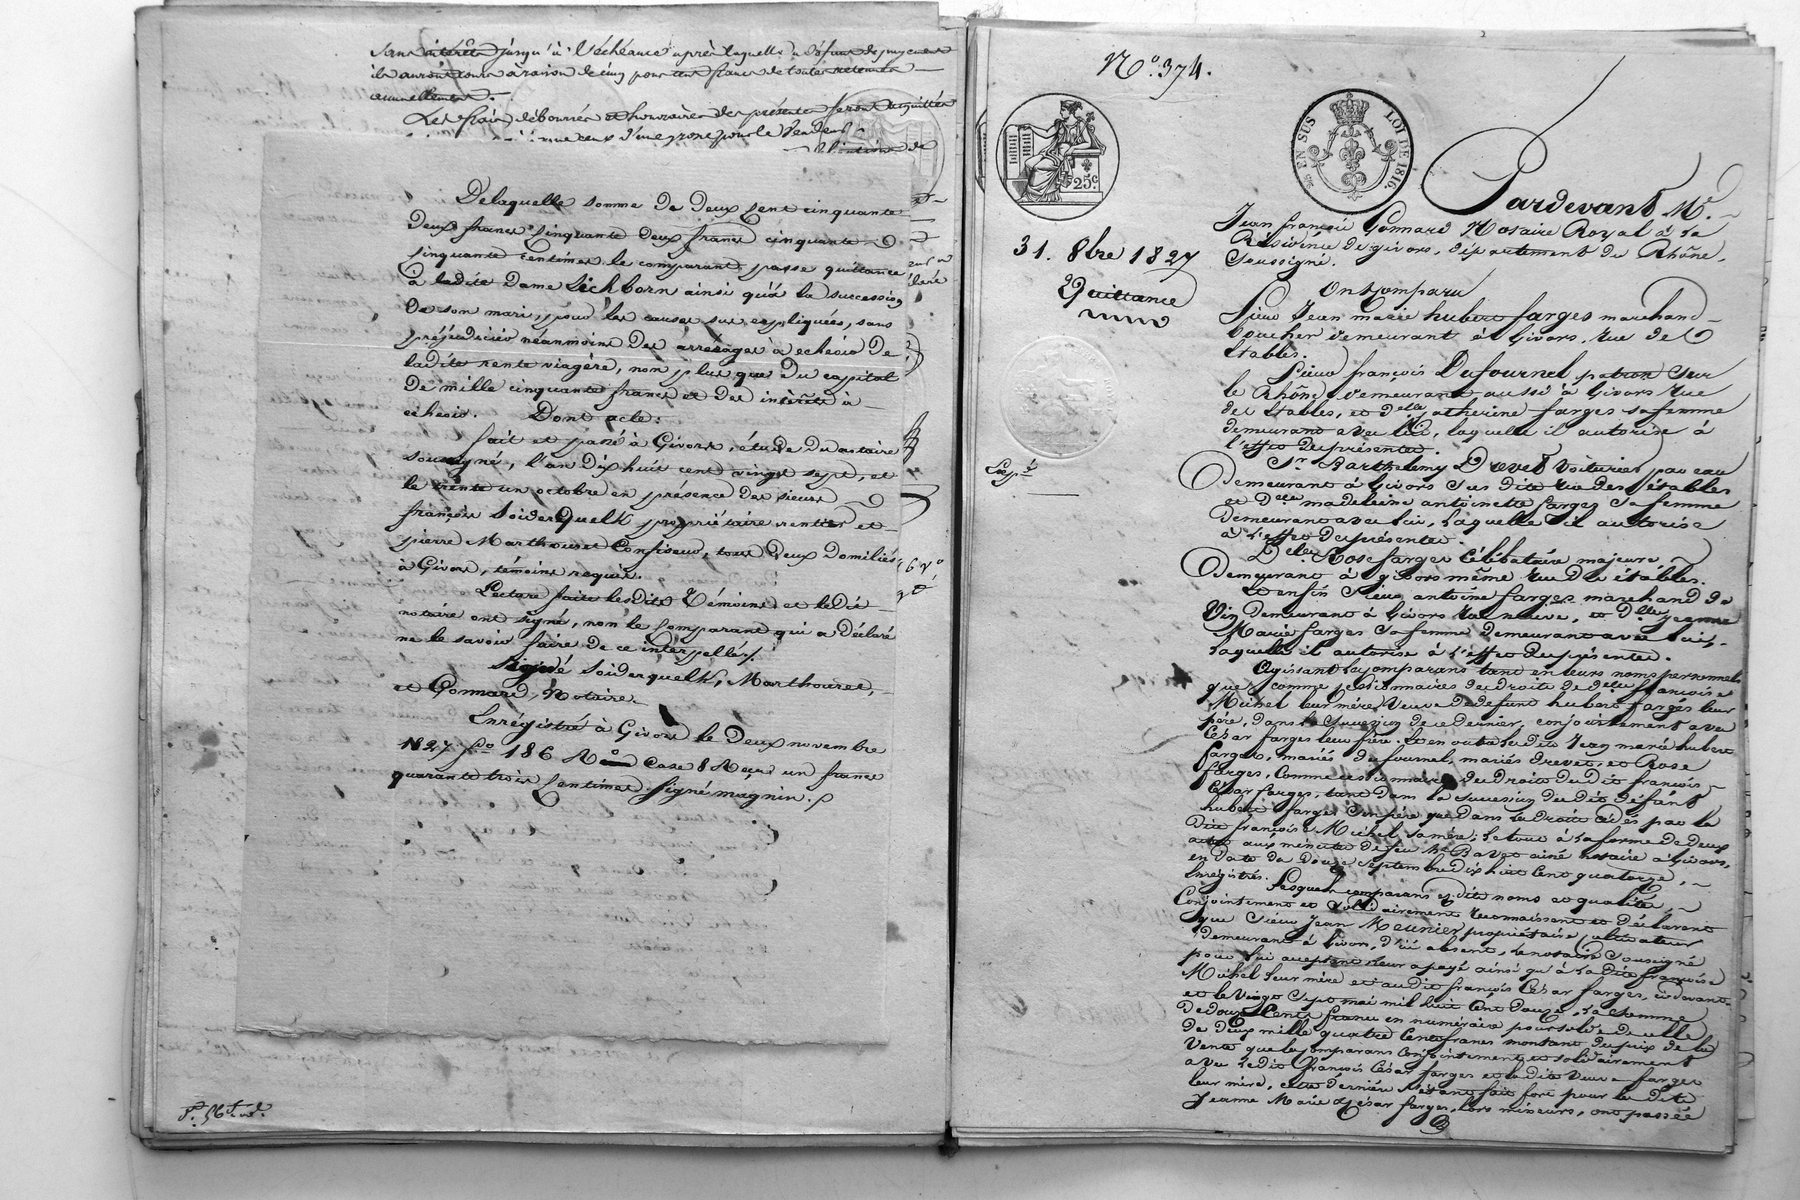 sans intérêts jusqu'à l'échéance après laquelle à défaut de payement
ils auront cours à raison de cinq pour cent francs de toutes retenues
annuellement.
Les frais, déboursés et honoraires des présentes seront acquittés
que ceux d'une grosse pour le Vendeur
De laquelle somme de deux cent cinquante
deux francs cinquante deux francs cinquante
cinquante centimes le comparant passe quittance
à ladite Dame Eichborn ainsi qu'à la succession
de son mari, pour les causes sus expliquées, sans
préjudicier néanmoins des arrérages à echeoir de
ladite rente viagère, non plus que du capital
de mille cinquante francs et des intérêts à
echeoir. Dont acte:
fait et passé à Givors, étude du notaire
soussigné, l'an dix huit cent vingt sept, et
le trente un octobre en présence des sieurs
françois Soiderquelk propriétaire rentier et
pierre Marthouret Confiseur, tous deux domiliés
à Givors, témoins requis.
Lecture faite lesdits témoins et le dit
notaire ont signé, non le comparant qui a déclaré
ne le savoir faire de ce interpellé./.
Signé Soiderquelk, Marthouret,
et Gonnard, Notaire.
Enrégistré à Givors le deux novembre
1827 fo 186 Ro Case 8 Reçu un franc
quarante trois centimes. Signé magnin.
No. 374.
25 c.
EN SUS
LOI DE 1816.
31. 8bre 1827
Quittance
Expé
Pardevant Me.
Jean françois Gonnard Notaire Royal à la
Résidence de givors, département du Rhône,
Soussigné.
Ont Comparu
Sieur Jean marie hubert farges marchand
boucher demeurant à Givors, rue des
Etables.
Sieur françois Dufournel patron sur
le Rhône, demeurant aussi à Givors rue
des Etables, et Delle Catherine farges sa femme
demeurant avec lui, laquelle il autorise à
l'effet des présentes.
Sr. Barthelemy Drevet Voiturier par eau
demeurant à Givors sus dite rue des Etables
et Delle madeleine antoinette farges sa femme
demeurant avec lui, laquelle il autorise
à l'effet des présentes.
Delle Rose farges Célibataire majeure,
demeurant à givors même rue des étables.
Et enfin Sieur antoine farges marchand de
Vin demeurant à Givors rue neuve, et Delle Jeanne
Marie farges sa femme demeurant avec lui,
laquelle il autorise à l'effet des présentes.
Agissant les comparans tant en leurs noms personnels
que comme cessionnaires des droits de Delle françoise
Michel leur mère Veuve de defunt hubert farges leur
père, dans la succession de ce dernier, conjointement avec
César farges leur frère. Et en outre lesdits Jean marie hubert
farges, mariés Dufournel, mariés Drevet, et Rose
farges, Comme cessionnaires des droits dudit françois
César farges, tant dans la succession dudit défunt
hubert farges son père que dans les droits cédés par la
dite françoise Michel sa mère; le tout à la forme de deux
actes aux minutes de feu Me Bavet ainé notaire à givors,
en date du douze septembre dix huit cent quatorze,
Enregistrés.
Lesquels comparans esdits noms et qualités,
Conjointement et solidairement reconnaissent et déclarent
que Sieur Jean Meunier propriétaire cultivateur
demeurant à Givors, d'ici absent, le notaire Soussigné
pour lui acceptant leur a payé ainsi qu'à la dite françoise
Michel leur mère et audit françois César farges, ci devant
et le vingt sept mai mil huit cent douze, la somme
de douze cents francs en numéraire pour solde de celle
de deux mille quatre cents francs montant du prix de la
Vente que les comparans Conjointement et solidairement
avec ledit françois César farges et la dite veuve farges
leur mère, cette dernière s'étant fait fort pour les dits
Jeanne Marie et César farges, lors mineurs, ont passée